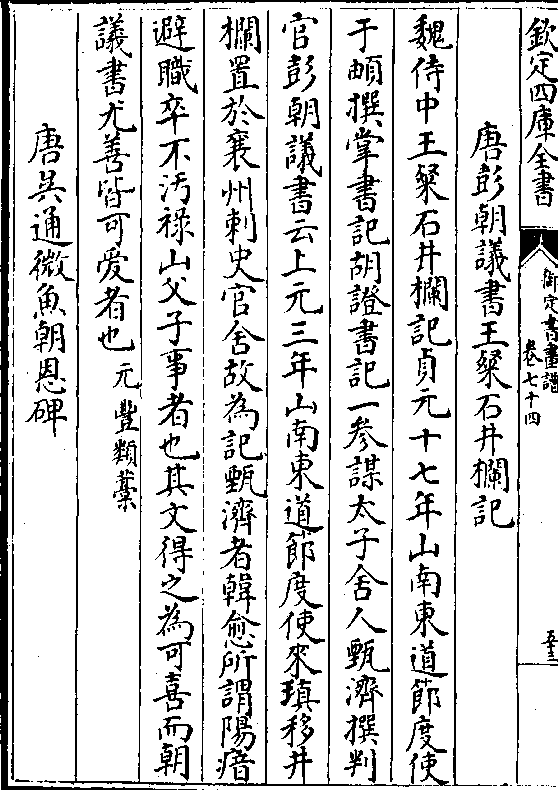 欽定四庫全書
御定書畫譜
卷七十四
五十三
唐彭朝議書王粲石井欄記
魏侍中王粲石井欄記貞元十七年山南東道節度使
于頔撰掌書記胡證書記一參謀太子舍人甄濟撰判
官彭朝議書云上元三年山南東道節度使來瑱移井
欄置於襄州刺史官舍故為記甄濟者韓愈所謂陽瘖
避職卒不汚祿山父子事者也其文得之為可喜而朝
議書尤善皆可爱者也元豐類藁
唐吳通微魚朝恩碑